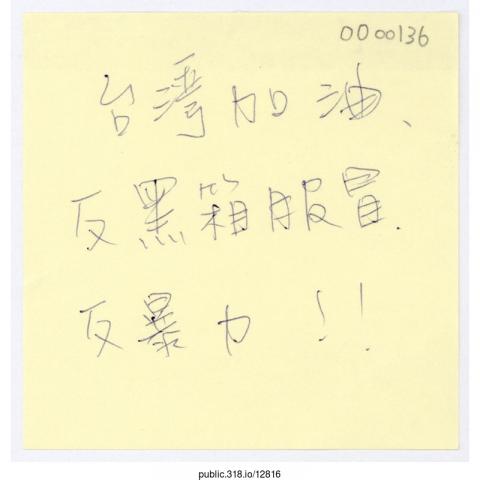 0000136
台灣加油、
反黑箱服冒.
反暴力 !!!
public.318.io/12816